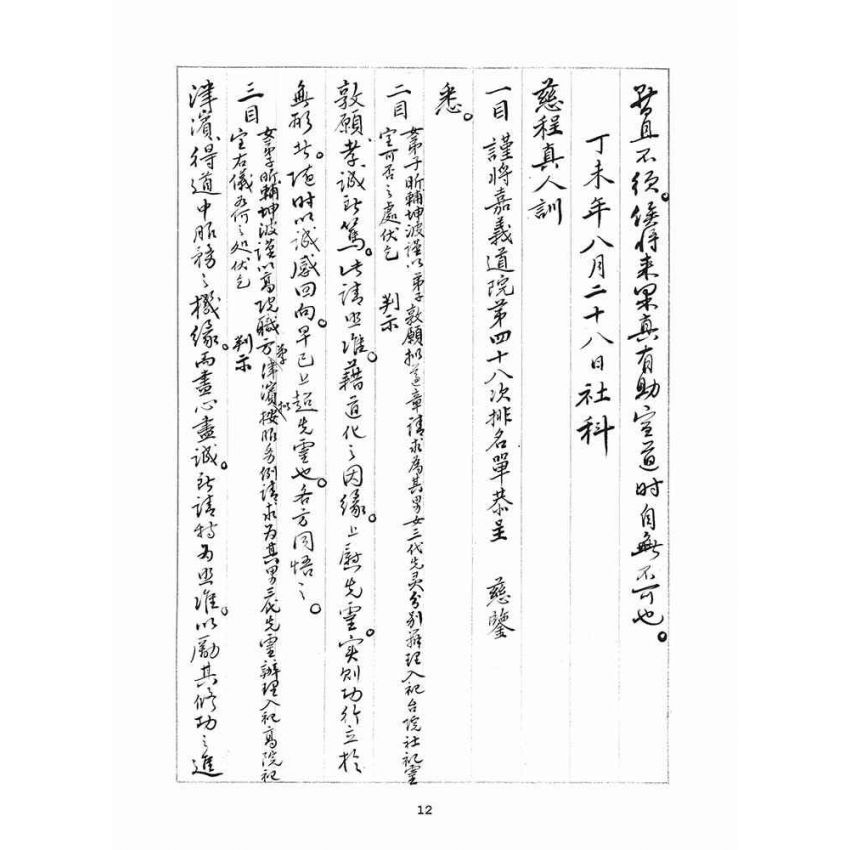 暫且不須。候將來果真有助宣道时自無不可也。
丁未年八月二十八日社科
慈程真人訓
一目 謹將嘉義道院第四十八次排名單恭呈 慈鑒
悉。
二目 女弟子昕輔坤波謹以弟子敦願拟遵章請求為其男女三代先灵分別辦理入祀台院社祀靈
室可否之處伏乞 判示
敦願孝誠致篤。此請照准。藉道化之因緣。上慰先靈。實則功行立於
無形者。随时以誠感回向早已上超先靈也。各方同悟之。
三目 女弟子昕輔坤波謹以高院職方津濱拟按服务例請求为其男三代先靈辦理入祀高院祀
室右儀為何之处伏乞 判示
津濱得道中服務之機緣。而盡心盡誠。致請特为照准。以勵其修功之進
12